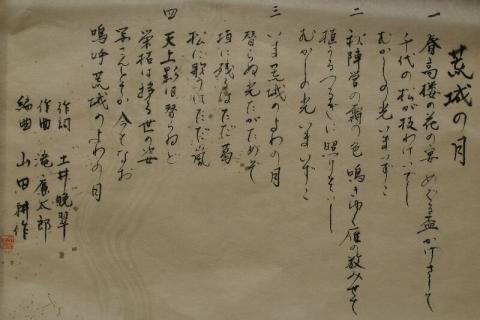 荒城の月
一 春高楼の花の宴 めぐる盃かげさして
千代の松が枝わけいでし
むかしの光いまいずこ
二 秋陣営の霜の色 鳴きゆく雁の数みせて
植うるつるぎに照りそいし
むかしの光いまいずこ
三 いま荒城のよわの月
替らぬ光たがためぞ
垣に残るはただ葛
松に歌うはただ嵐
四 天上影は替らねど
栄枯は移る世の姿
写さんとてか今もなお
嗚呼荒城のよわの月
作詞 土井晩翠
作曲 滝廉太郎
編曲 山田耕作